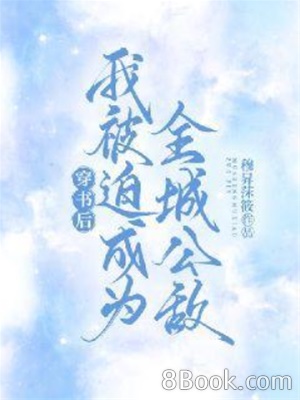 穿书后
我被迫成为
全城公敌
8Book.com